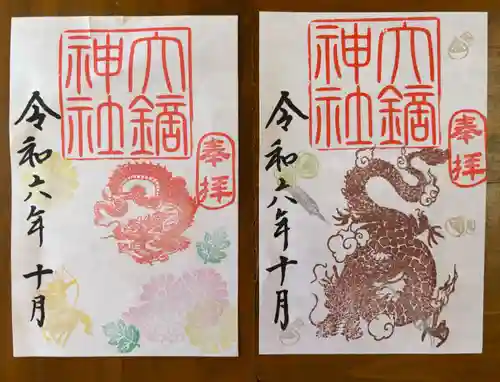 奉拝
大鏑
神社
令和六年 十月
奉拝
大鏑
神社
令和六年十月